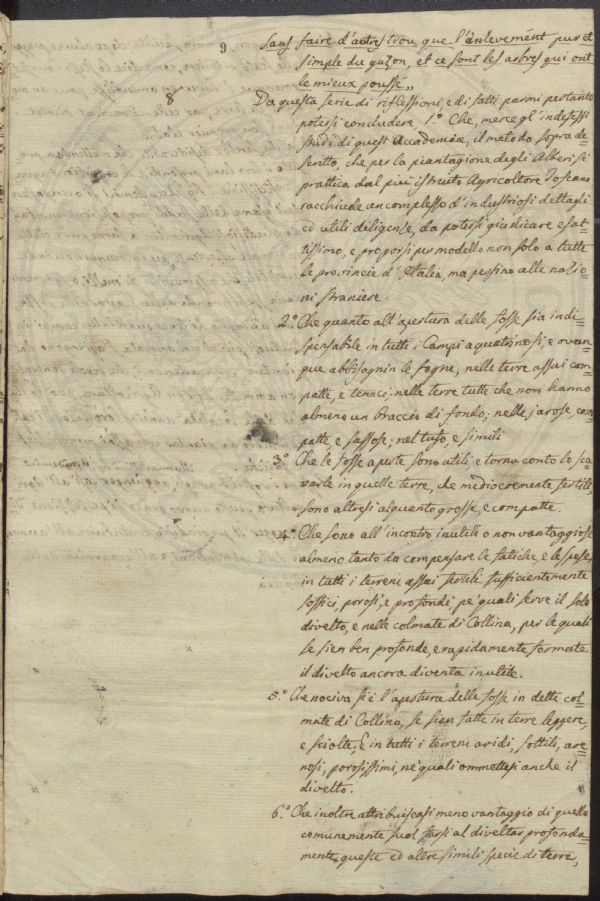 9
8
sans faire d'autres trou que l'enlevement pur et
simple du gazon, et ce sont les arbres qui ont
le mieux poussé„
Da questa serie di riflessioni, e di fatti parmi pertanto
potersi concludere, 1.° Che, mercè gl'indefessi
studi di quest'Accademia, il metodo sopra de=
scritto, che per la piantagione degli Alberi si
prattica dal più istruito Agricoltore Toscano
racchiude un complesso d'industriosi dettagli
ed utili diligenze, da potersi giudicare esat=
tissimo, e proporsi per modello non solo a tutte
le provincie d'Italia, ma persino alle nazio=
ni straniere.
2.° Che quanto all'apertura delle fosse sia indi=
spensabile in tutti i Campi aquatrinosi, e ovun=
que abbisognin le fogne; nelle terre assai com=
patte, e tenaci; nelle terre tutte che non hanno
almeno un Braccio di fondo; nelle jarose, com=
patte e sassose; nel tufo, e simili
3.° Che le fosse aperte sono utili e torna conto lo sca=
varle in quelle terre, che mediocremente fertili,
sono altresì alquanto grosse, e compatte.
4.° Che sono all'incontro inutili o non vantaggiose
almeno tanto da compensare le fatiche, e le spese,
in tutti i terreni assai fertili sufficientemente
soffici, porosi, e profondi pe' quali serve il solo
divelto, e nelle colmate di Collina, per le quali
se sien ben profonde, e rapidamente formate
il divelto ancora diventa inutile.
5.° Che nociva si è l'apertura delle fosse in dette col=
mate di Collina, se sien fatte in terre leggere,
e sciolte, E in tutti i terreni aridi, sottili, are=
nosi, porosissimi, ne' quali ommettesi anche il
divelto.
6.° Che inoltre attribuiscasi meno vantaggio di quello
comunemente suol farsi al diveltar profonda=
mente queste ed altre simili specie di terre,